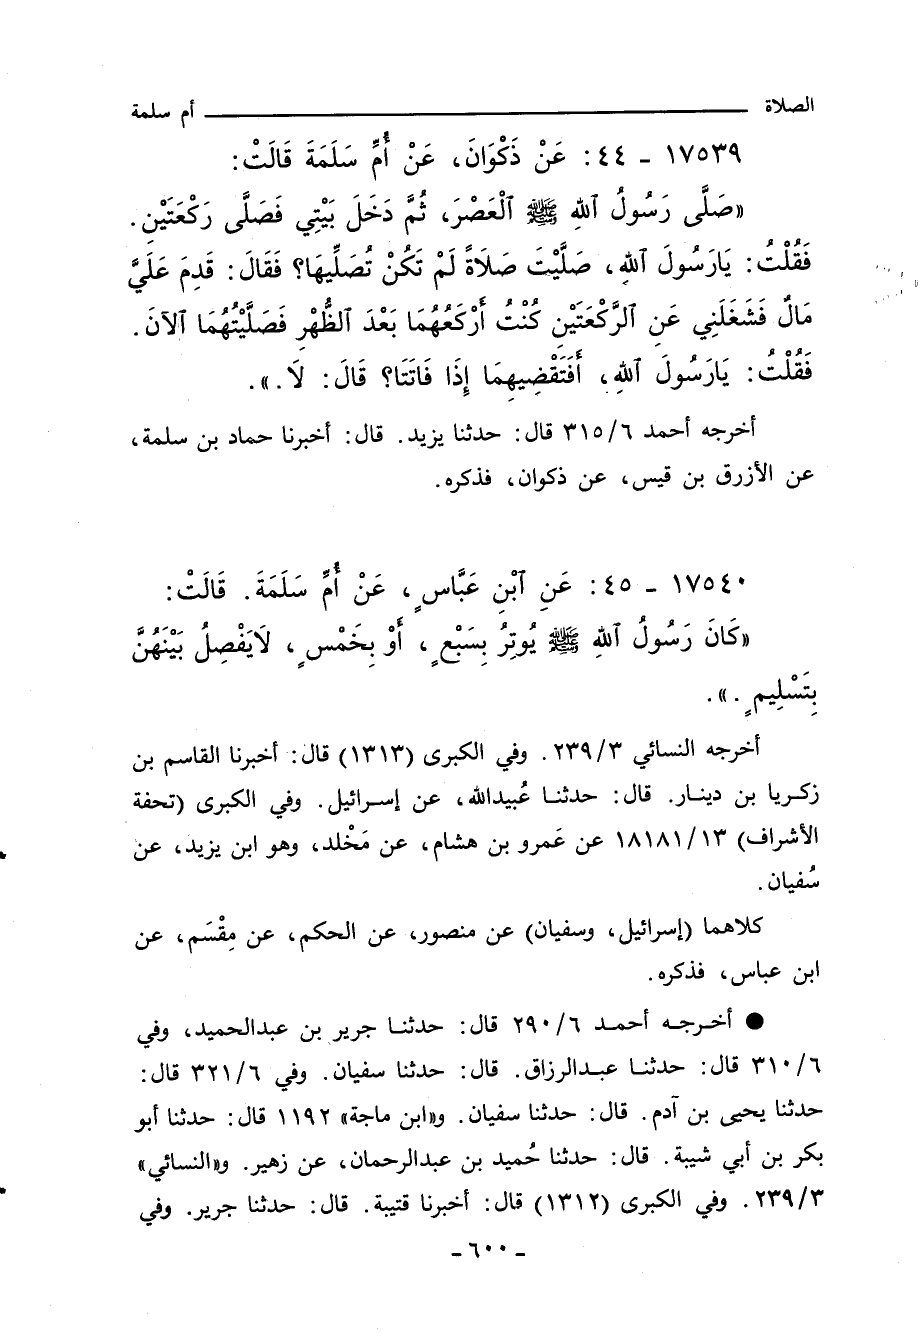 الصلاة أم سلمة
١٧٥٣٩ ـ ٤٤: عَنْ ذَكْوَانَ، عَنْ أُمِّ سَلَمَةَ قَالَتْ:
«صَلَّى رَسُولُ ٱللهِ ﷺ ٱلْعَصْرَ، ثُمَّ دَخَلَ بَيْتِي فَصَلَّى رَكْعَتَيْنِ.
فَقُلْتُ: يَارَسُولَ ٱللهِ، صَلَّيْتَ صَلَاةً لَمْ تَكُنْ تُصَلِّيهَا؟ فَقَالَ: قَدِمَ عَلَيَّ
مَالٌ فَشَغَلَنِي عَنِ ٱلرَّكْعَتَيْنِ كُنْتُ أَرْكَعُهُمَا بَعْدَ ٱلظُّهْرِ فَصَلَّيْتُهُمَا ٱلآنَ.
فَقُلْتُ: يَارَسُولَ ٱللهِ، أَفَتَقْضِيهِمَا إِذَا فَاتَتَا؟ قَالَ: لَا.».
أخرجه أحمد ٣١٥/٦ قال: حدثنا يزيد. قال: أخبرنا حماد بن سلمة،
عن الأزرق بن قيس، عن ذكوان، فذكره.
١٧٥٤٠ ـ ٤٥: عَنِ ٱبْنِ عَبَّاسٍ، عَنْ أُمِّ سَلَمَةَ. قَالَتْ:
«كَانَ رَسُولُ ٱللهِ ﷺ يُوتِرُ بِسَبْعٍ، أَوْ بِخَمْسٍ، لَايَفْصِلُ بَيْنَهُنَّ
بِتَسْلِيمٍ.».
أخرجه النسائي ٢٣٩/٣. وفي الكبرى (١٣١٣) قال: أخبرنا القاسم بن
زكريا بن دينار. قال: حدثنا عُبيدالله، عن إسرائيل. وفي الكبرى (تحفة
الأشراف) ١٨١٨١/١٣ عن عَمرو بن هشام، عن مَخْلد، وهو ابن يزيد، عن
سُفيان.
كلاهما (إسرائيل، وسفيان) عن منصور، عن الحكم، عن مِقْسَم، عن
ابن عباس، فذكره.
● أخرجه أحمد ٢٩٠/٦ قال: حدثنا جرير بن عبدالحميد، وفي
٣١٠/٦ قال: حدثنا عبدالرزاق. قال: حدثنا سفيان. وفي ٣٢١/٦ قال:
حدثنا يحيى بن آدم. قال: حدثنا سفيان. و«ابن ماجة» ١١٩٢ قال: حدثنا أبو
بكر بن أبي شيبة. قال: حدثنا حُميد بن عبدالرحمان، عن زهير. و«النسائي»
٢٣٩/٣. وفي الكبرى (١٣١٢) قال: أخبرنا قتيبة. قال: حدثنا جرير. وفي
- ٦٠٠ -